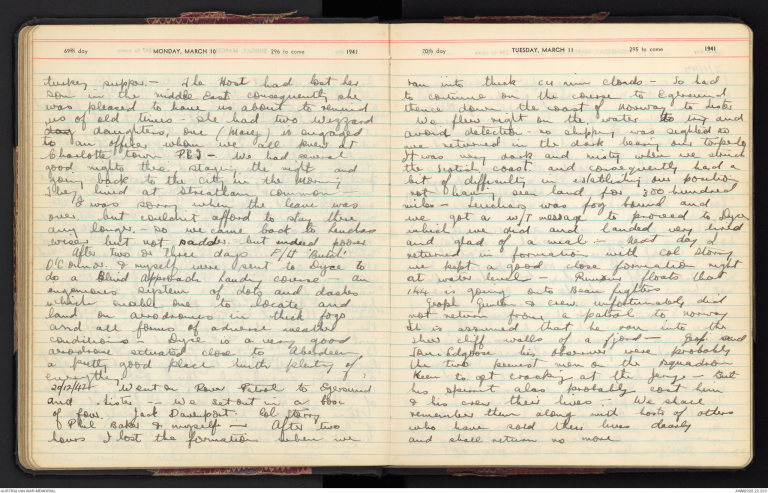 69th day MONDAY, MARCH 10 296 to come 1941
turkey supper. - The Host had lost her
son in the middle East consequently she
was pleased to have us about to remind
us of old times - She had two wizzard
day daughters, one (Mary) is engaged
to an officer whom we all knew at
Charlotte town PEI - We had several
good nights there staying the night and
going back to the city in the morning
They lived at Streatham common -
I was sorry when the leave was
over but couldn't afford to stay there
any longer. - so we came back to Leuchars
wiser but not sadder but indeed poorer
After two or three days F/Lt 'Butch'
O'Connor & myself were sent to Dyce to
do a Blind approach Landing course - an
ingenious system of dots and dashes
which enable one to locate and
land on aerodromes in thick fogs
and all forms of adverse weather
conditions Dyce is a very good
aerodrome situated close to Aberdeen,
a pretty good place with plenty of
everything
29/12/42 Went on Rover Patrol to Egersund
and Lister - We set out in a box
of four. Jack Davenport. Col Storry
Phil Baker & myself - After two
hours I lost the formation when we
70th day TUESDAY, MARCH 11 295 to come 1941
ran into thick cu nim clouds - So had
to continue on the course to Egersund
thence down the coast of Norway to Lister
We flew right on the water to try and
avoid detection - no shipping was sighted so
we returned in the dark bearing our torpedo
It was very dark and misty when we struck
the Scottish coast and consequently had a
bit of difficulty in establishing our position
not having seen land for 300 hundred
miles - Leuchars was fog bound and
we got a w/T message to proceed to Dyce
which we did and landed very tired
and glad of a meal - Next day I
returned in formation with Col Storry
we kept a good close formation right
at water level - Rumour floats that
144 is going onto Beau fighters
Geoph & crew unfortunately did
not return from a patrol to norway
It is assumed that he ran into the
sheer cliff walls of a fjord - Geop and
Ian his observer were probably
the two keenest men on the squadron
keen to get cracking at the Jerry - But
his spirit alas probably cost him
& his crew their lives - We shall
remember them along with hosts of others
who have sold their lives dearly
and shall return no more
AUSTRALIAN WAR MEMORIAL